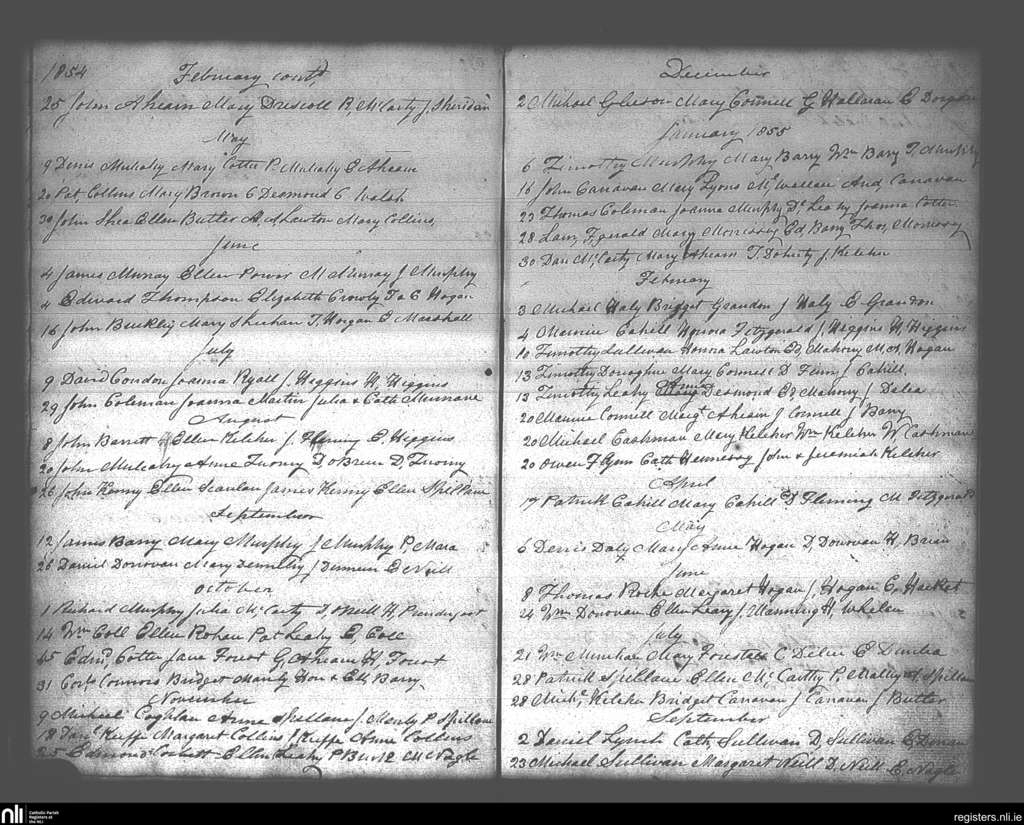 1854 February contd,
25 John Ahearn Mary Driscoll B, McCarty J, Sheridan
May
9 Denis Mulcahy Mary Cotter P. Mulcahy E Ahearn
20 Pat, Collins Mary Brown C Desmond C Walsh
30 John Shea Ellen Butler A, A Lawton Mary Collins,
June
4 James Murray Ellen Power M Murray J Murphy
4 Edward Thompson Elizabeth Crowly & C Hogan
16 John Buckley Mary Sheehan T, Horgan E Marshall
July
9 David Condon Joanna Ryall J. Higgins H, Higgins
29 John Coleman Joanna Martin Julia & Cath
August
8 John Barrett Ellen Keleher J, Fleming E, Higgins
20 John Mulcahy Anne Twomy D, O Brien D, Twomy
26 John Kenny Ellen Scanlan James Kenny Ellen
September
12 James Barry Mary Murphy J Murphy P, Mara
26 Daniel Donovan Mary J E Neill
October
1 Richard Murphy Julia McCarty D, O Neill H, Prendergast
14 Wm Coll Ellen Rohan Pat Leahy E, Coll
15 Edmd, Cotter Jane Forest G, Ahearn H, Forest
31 Cors Connors Bridget Manly Hon & Ell Barry
November
9 Michael Coghlan Anne Spillane J, Manly P Spillane
18 Danl Keeffe Margaret Collins J Keeffe Anne Collins
25 Edmond Corbett Ellen Leahy P Burke M Nagle
December
2 Michael Gleeson Mary Connell G Hallinan E
January 1855
6 Timothy Murphy Mary Barry Wm Barry T, Murphy
16 John Canavan Mary Lyons And, Canavan
23 Thomas Coleman Joanna Murphy Dl Leahy Joanna Cotter
28 Law, Fzgerald Mary Morrissy Ed, Barry Thos, Morrissy
30 Dan McCarty Mary Ahearn T. Doherty J, Keleher
February
3 Michael Haly Bridget Grandon J Haly E Grandon
4 Maurice Cahill Honora Fitzgerald J, Higgins H Higgins
10 Timothy Sullivan Honora Lawton Ed, Mahony M, A, Hogan
13 Timothy Donoghue Mary Connell D Flinn J Cahill,
13 Timothy Leahy Anne Desmond Ed Manning J Delea
20 Maurice Connell Margt Ahearn J Connell J Barry
20 Michael Cashman Mary Keleher Wm Keleher W Cashman
20 Owen Flynn Cath Hennessy John & Jeremiah Keleher
April
17 Patrick Cahill Mary Cahill D Fleming M Fitzgerald
May
6 Denis Daly Mary Anne Hogan D, Donovan H, Brian
June
8 Thomas Roche Margaret Hogan J, Hogan E, Hacket
24 Wm Donovan Ellen Leary J, Manning H, Whelan
July
21 Wm Minehan Mary Forestal C Delea E Dunlea
28 Patrick Spillane Ellen McCarthy P, Spillane
28 Michl Keleher Bridget Canavan J Canavan J Butler
September
2 Daniel Lynch Cath, Sullivan D, Sullivan E
23 Michael Sullivan Margaret Neill D, Neill E, Nagle
nli Catholic Parish Registers at the NLI
registers.nli.ie